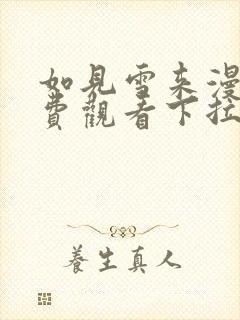 如見雪来漫
費觀看下拉
養生真人